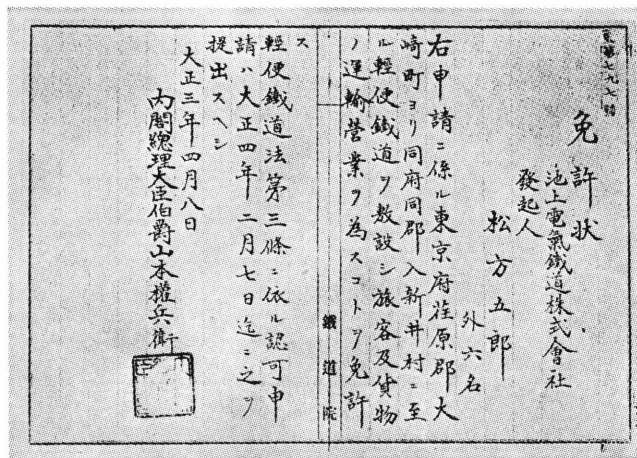 監第七九七號
免許状
池上電氣鐵道株式會社
發起人
松方五郎
外六名
右申請ニ係ル東京府荏原郡大
崎町ヨリ同府同郡入新井村ニ至
ル輕便鐵道ヲ敷設シ旅客及貨物
ノ運輸營業ヲ為スコトヲ免許
鐵道院
ス
輕便鐵道法第三條ニ依ル認可申
請ハ大正四年二月七日迄ニ之ヲ
提出スヘシ
大正三年四月八日
内閣總理大臣伯爵山本權兵衞